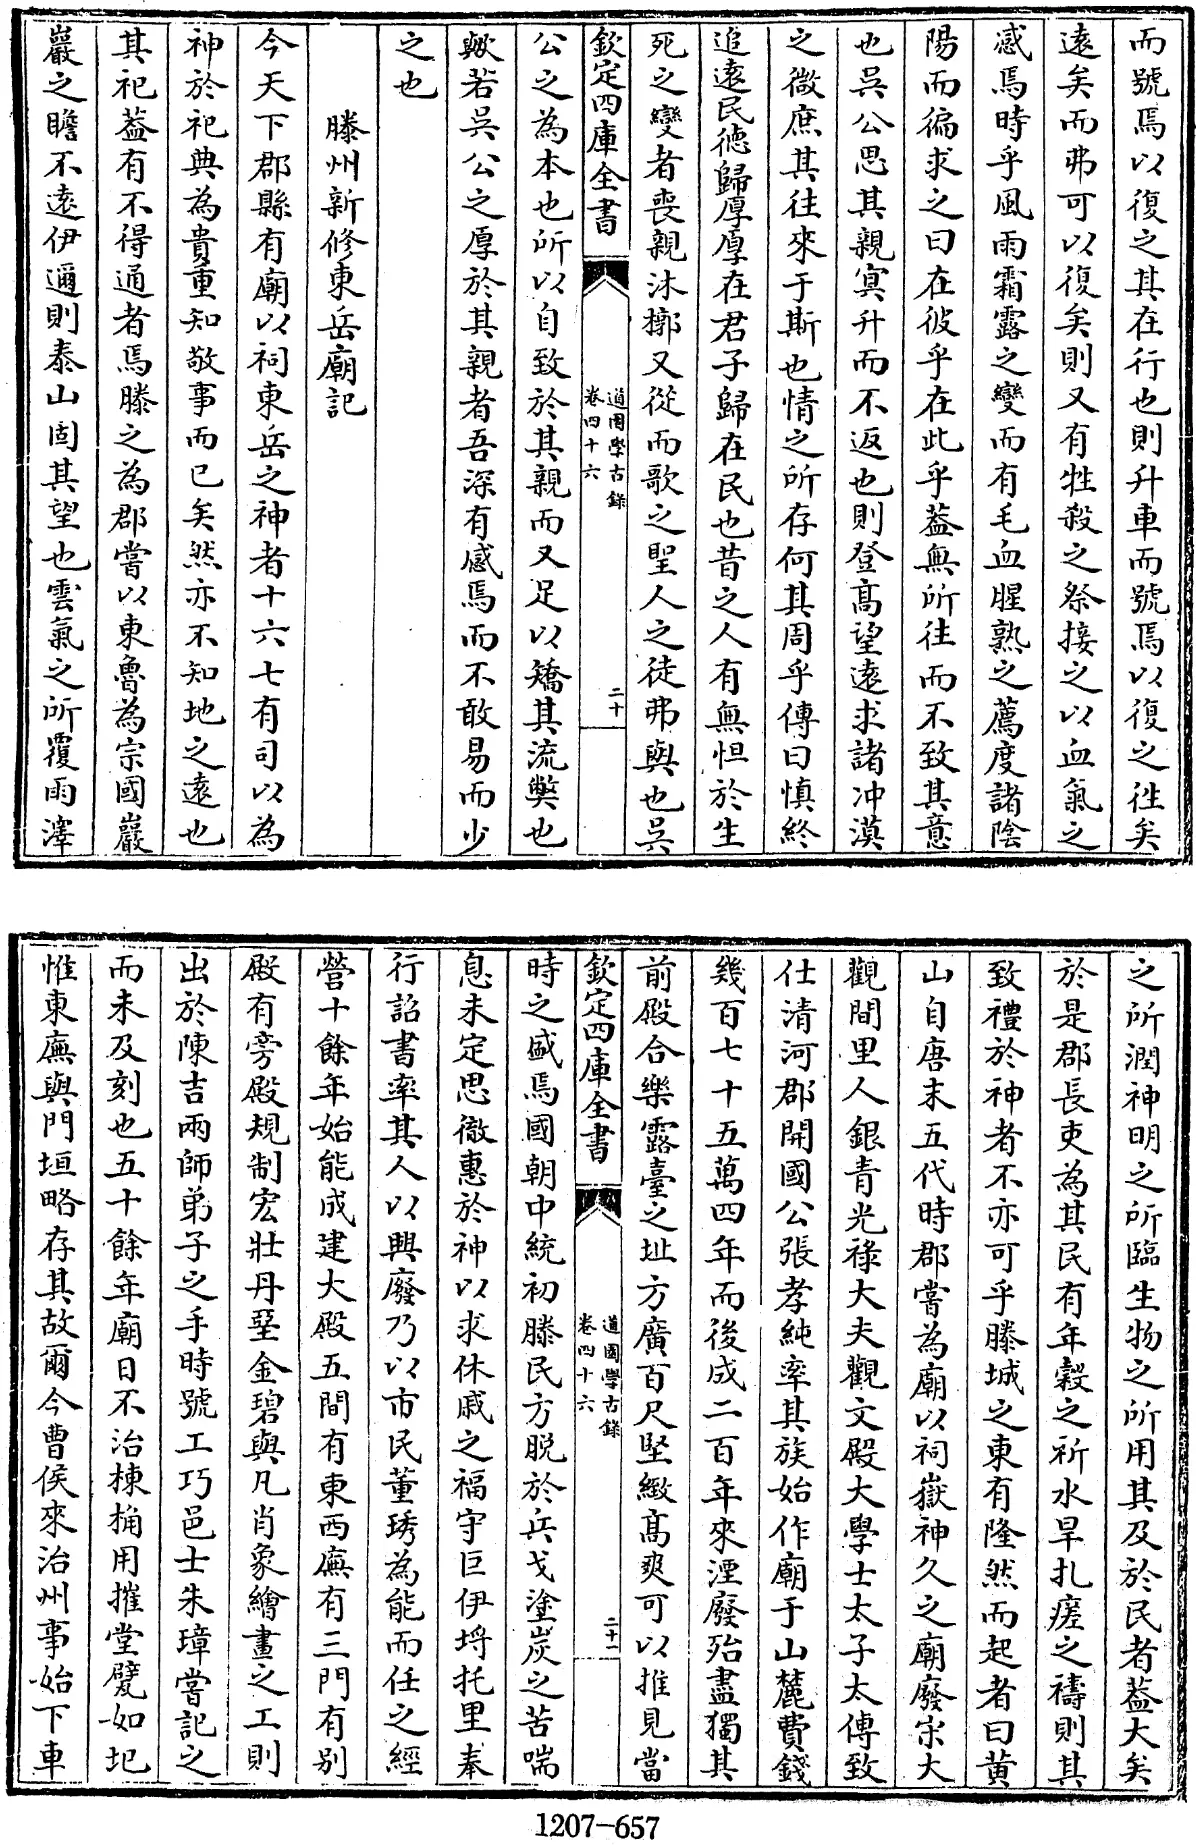 而號焉以復之其在行也則升車而號焉以復之徃矣
遠矣而弗可以復矣則又有牲殺之祭接之以血氣之
感焉時乎風雨霜露之變而有毛血腥熟之薦度諸陰
陽而徧求之曰在彼乎在此乎葢無所徃而不致其意
也吳公思其親㝠升而不返也則登髙望逺求諸冲漠
之微庶其往來于斯也情之所存何其周乎傳曰慎終
追遠民徳歸厚厚在君子歸在民也昔之人有無怛於生
死之變者喪親沐槨又從而歌之聖人之徒弗與也吳
欽定四庫全書
道園學古錄
卷四十六
二十
公之為本也所以自致於其親而又足以矯其流獘也
歟若吳公之厚於其親者吾深有感焉而不敢易而少
之也
滕州新修東岳廟記
今天下郡縣有廟以祠東岳之神者十六七有司以為
神於祀典為貴重知敬事而已矣然亦不知地之遠也
其祀葢有不得通者焉滕之為郡嘗以東魯為宗國巖
巖之瞻不遠伊邇則泰山固其望也雲氣之所覆雨澤
之所潤神明之所臨生物之所用其及於民者葢大矣
於是郡長吏為其民有年穀之祈水旱扎瘥之禱則其
致禮於神者不亦可乎滕城之東有隆然而起者曰黄
山自唐末五代時郡嘗為廟以祠嶽神久之廟廢宋大
觀間里人銀青光禄大夫觀文殿大學士太子太傅致
仕清河郡開國公張孝純率其族始作廟于山麓費錢
幾百七十五萬四年而後成二百年來湮廢殆盡獨其
前殿合樂露臺之址方廣百尺堅緻髙爽可以推見當
欽定四庫全書
道園學古錄
卷四十六
二十一
時之盛焉國朝中統初滕民方脱於兵戈塗炭之苦喘
息未定思徼惠於神以求休戚之福守臣伊埒托里奉
行詔書率其人以興廢乃以市民董琇為能而任之經
營十餘年始能成建大殿五間有東西廡有三門有别
殿有旁殿規制宏壯丹堊金碧與凡肖象繪畫之工則
出於陳吉兩師弟子之手時號工巧邑士朱璋嘗記之
而未及刻也五十餘年廟日不治棟桷用摧堂甓如圯
惟東廡與門垣略存其故爾今曹侯來治州事始下車
1207-657